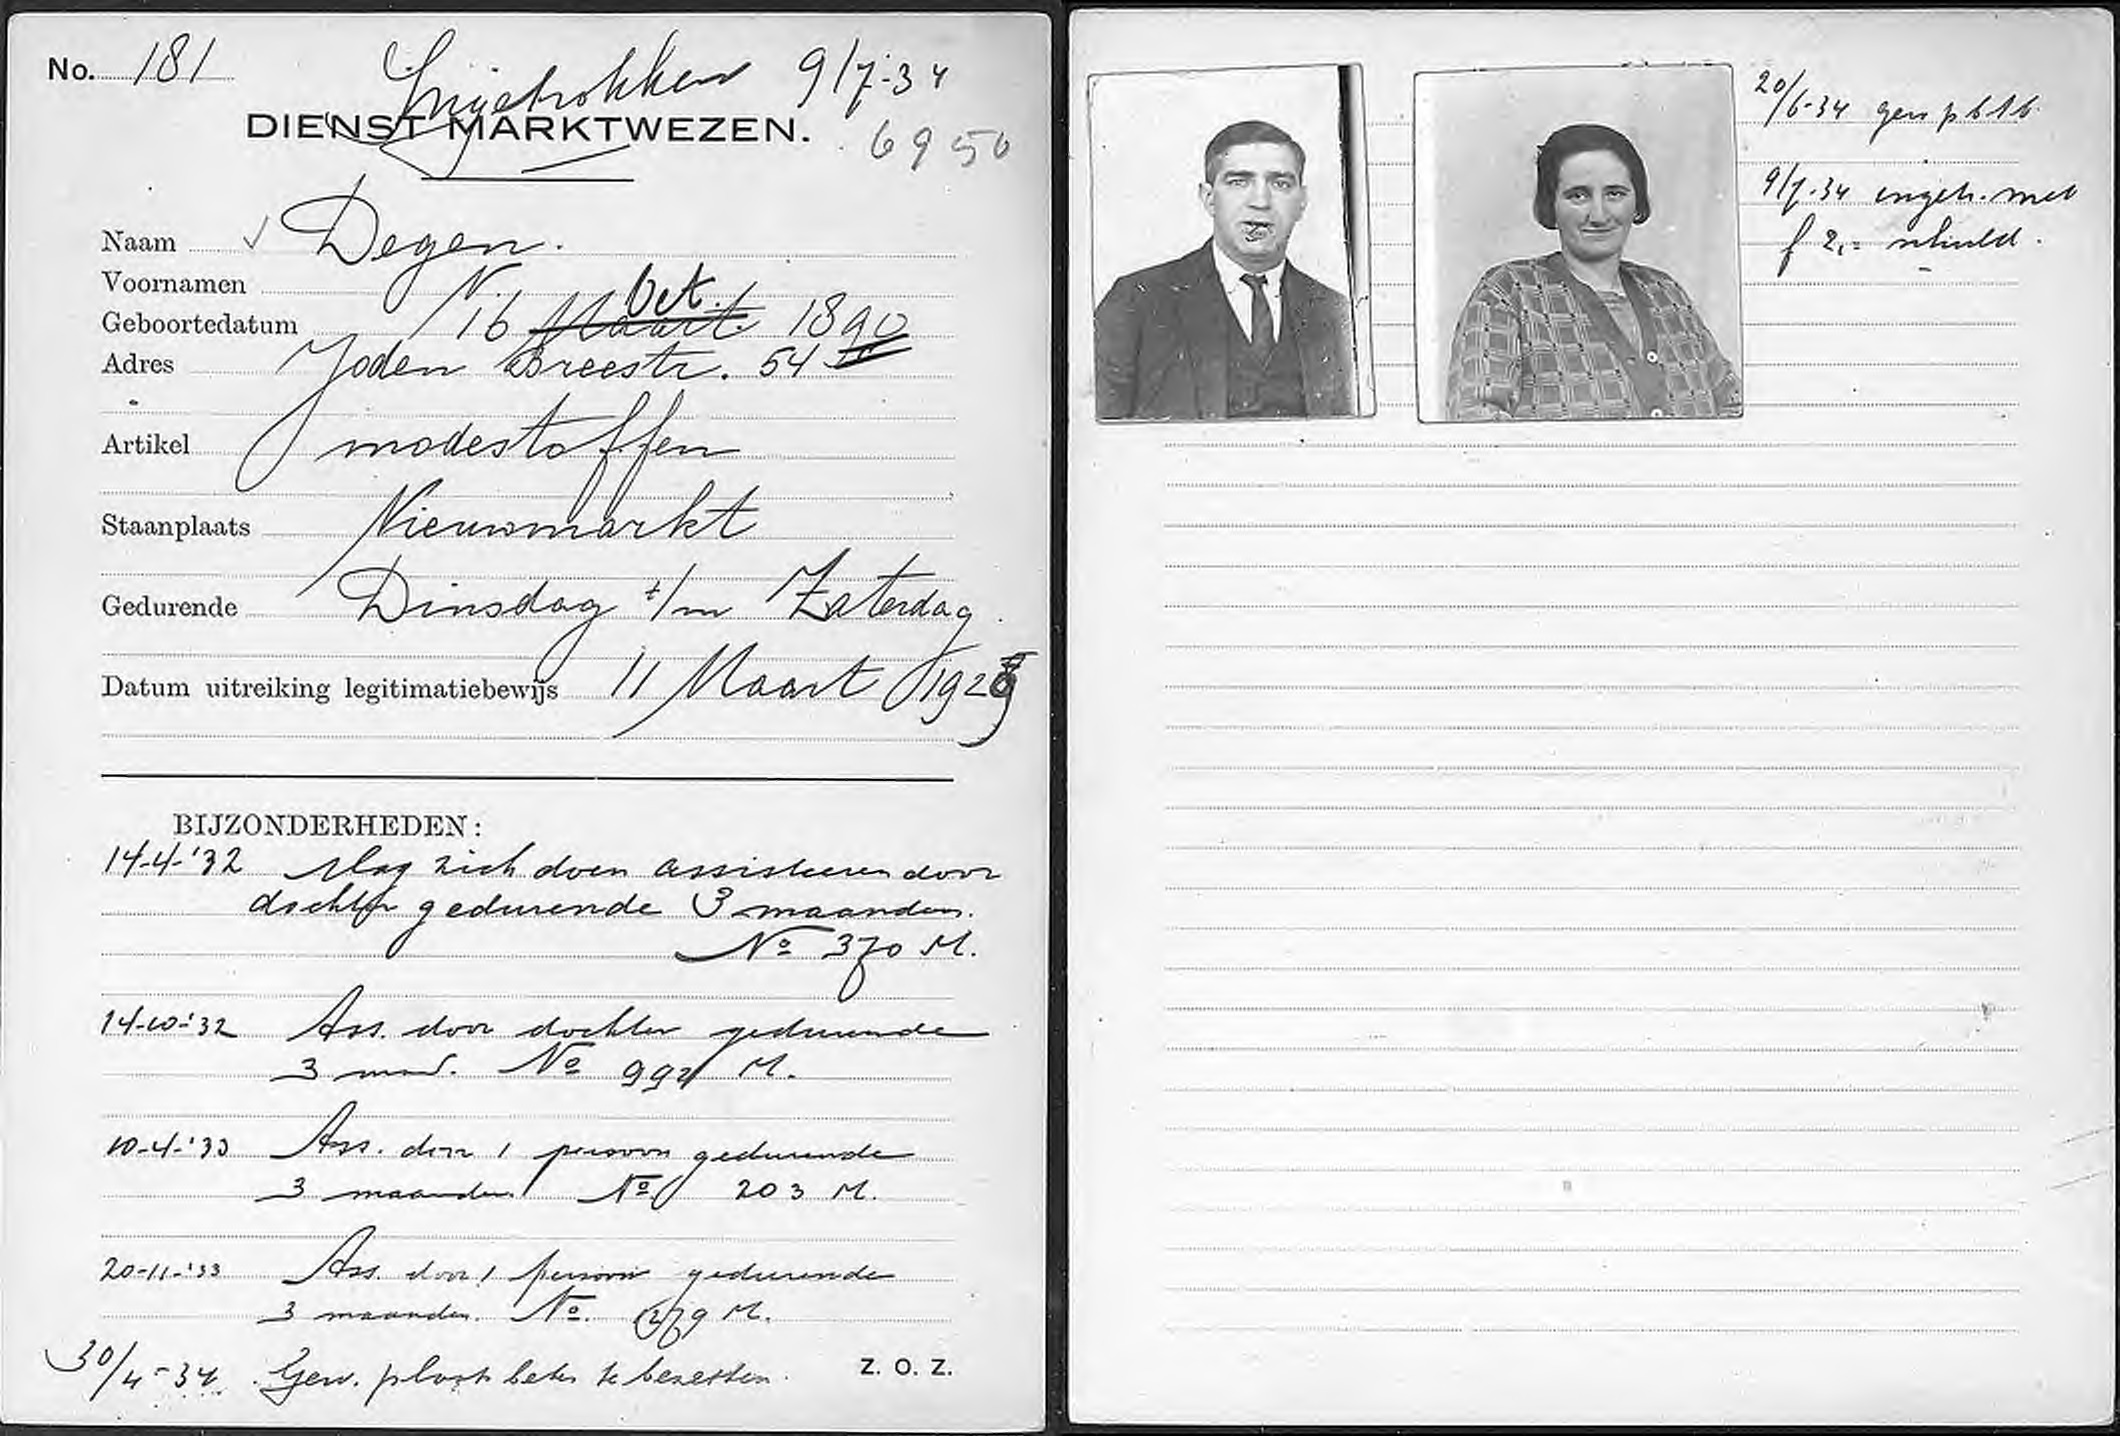 No. 181
Ingetrokken 9/7-34
DIENST MARKTWEZEN.
6950
Naam Degen.
Voornamen N.
Geboortedatum 16 Maart Oct. 1890
Adres Joden Breestr. 54
Artikel modestoffen
Staanplaats Nieuwmarkt
Gedurende Dinsdag t/m Zaterdag
Datum uitreiking legitimatiebewijs 11 Maart 1929
BIJZONDERHEDEN:
14-4-'32 Mag zich doen assisteeren door
dochter gedurende 3 maanden.
No 370 M.
14-10-'32 Ass. door dochter gedurende
3 mnd. No 992 M.
10-4-'33 Ass. door 1 persoon gedurende
3 maanden No 203 M.
20-11-'33 Ass. door 1 persoon gedurende
3 maanden. No. M.
30/4-34 Gew. plaats beter te bezetten.
Z. O. Z.
20/6-34 gew p b t b
9/7-34 ingetr. met
f 2,= schuld.